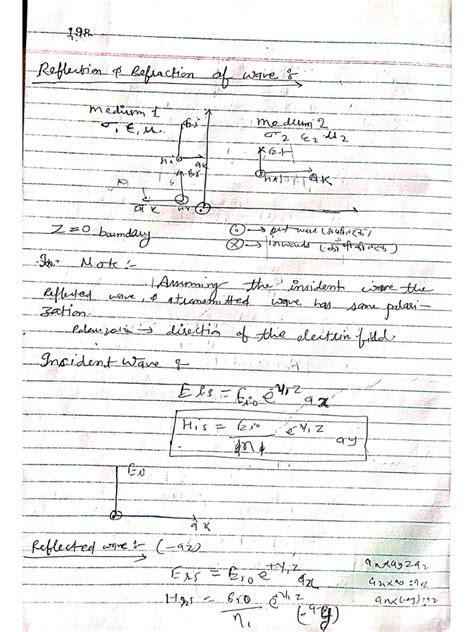 198
Reflection & Refraction of wave :
medium 1
σ₁ ε₁ μ₁
Ei
medium 2
σ₂ ε₂ μ₂
Et
Hi
ak
Er
Ht
ak
ak
Hr
Z=0 boundary
⊙ → out ward
⊗ → inwards
Note :-
Assuming the insident wave the
reflected wave & transmitted wave has same polari-
zation.
Polarization → direction of the electric field.
Insident Wave :
Eis = Eio e^-γ₁z ax
His = Eio/η₁ e^-γ₁z ay
Ei
ak
Reflected wave :- (-az)
Ers = Ero e^+γ₁z ax
Hrs = Ero/η₁ e^γ₁z (-ay)
ax×ay=az